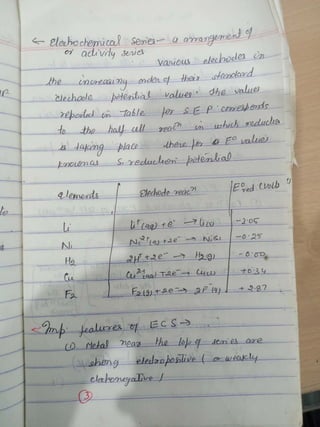 ← Electrochemical Series - a arrangement of
or activity series
various electrodes in
the increasing order of their standard
electrode potential values. The values
reported in Table for S.E.P. corresponds
to the half cell reacⁿ in which reduction
is taking place there for E° values
known as S. reduction potential
elements Electrode reacⁿ E°red (volt)
Li Li⁺(aq) + e⁻ → Li(s) -3.05
Ni Ni²⁺(aq) + 2e⁻ → Ni(s) -0.25
H₂ 2H⁺ + 2e⁻ → H₂(g) -0.00
Cu Cu²⁺(aq) + 2e⁻ → Cu(s) +0.34
F₂ F₂(g) + 2e⁻ → 2F⁻(g) + 2.87
← Imp. features of ECS →
(i) Metal near the top of series are
strong electropositive (or weakly
electronegative)
3